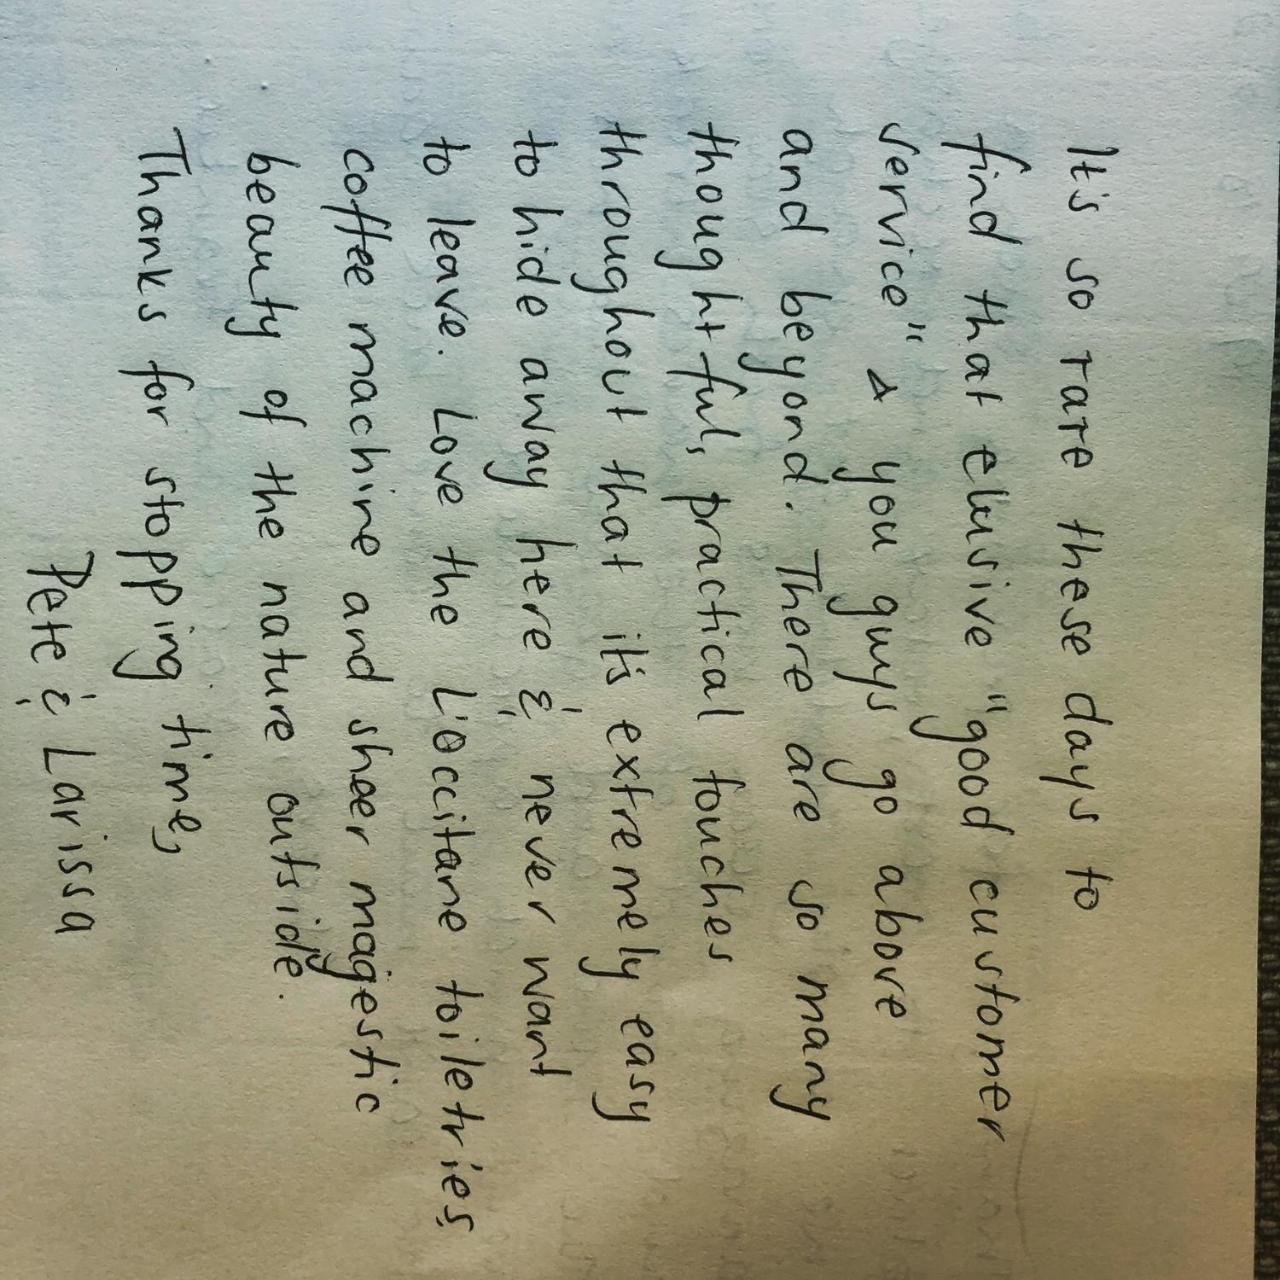 It's so rare these days to
find that elusive "good customer
service" & you guys go above
and beyond. There are so many
thoughtful, practical touches
throughout that it's extremely easy
to hide away here & never want
to leave. Love the L'occitane toiletries
coffee machine and sheer magestic
beauty of the nature outside.
Thanks for stopping time,
Pete & Larissa